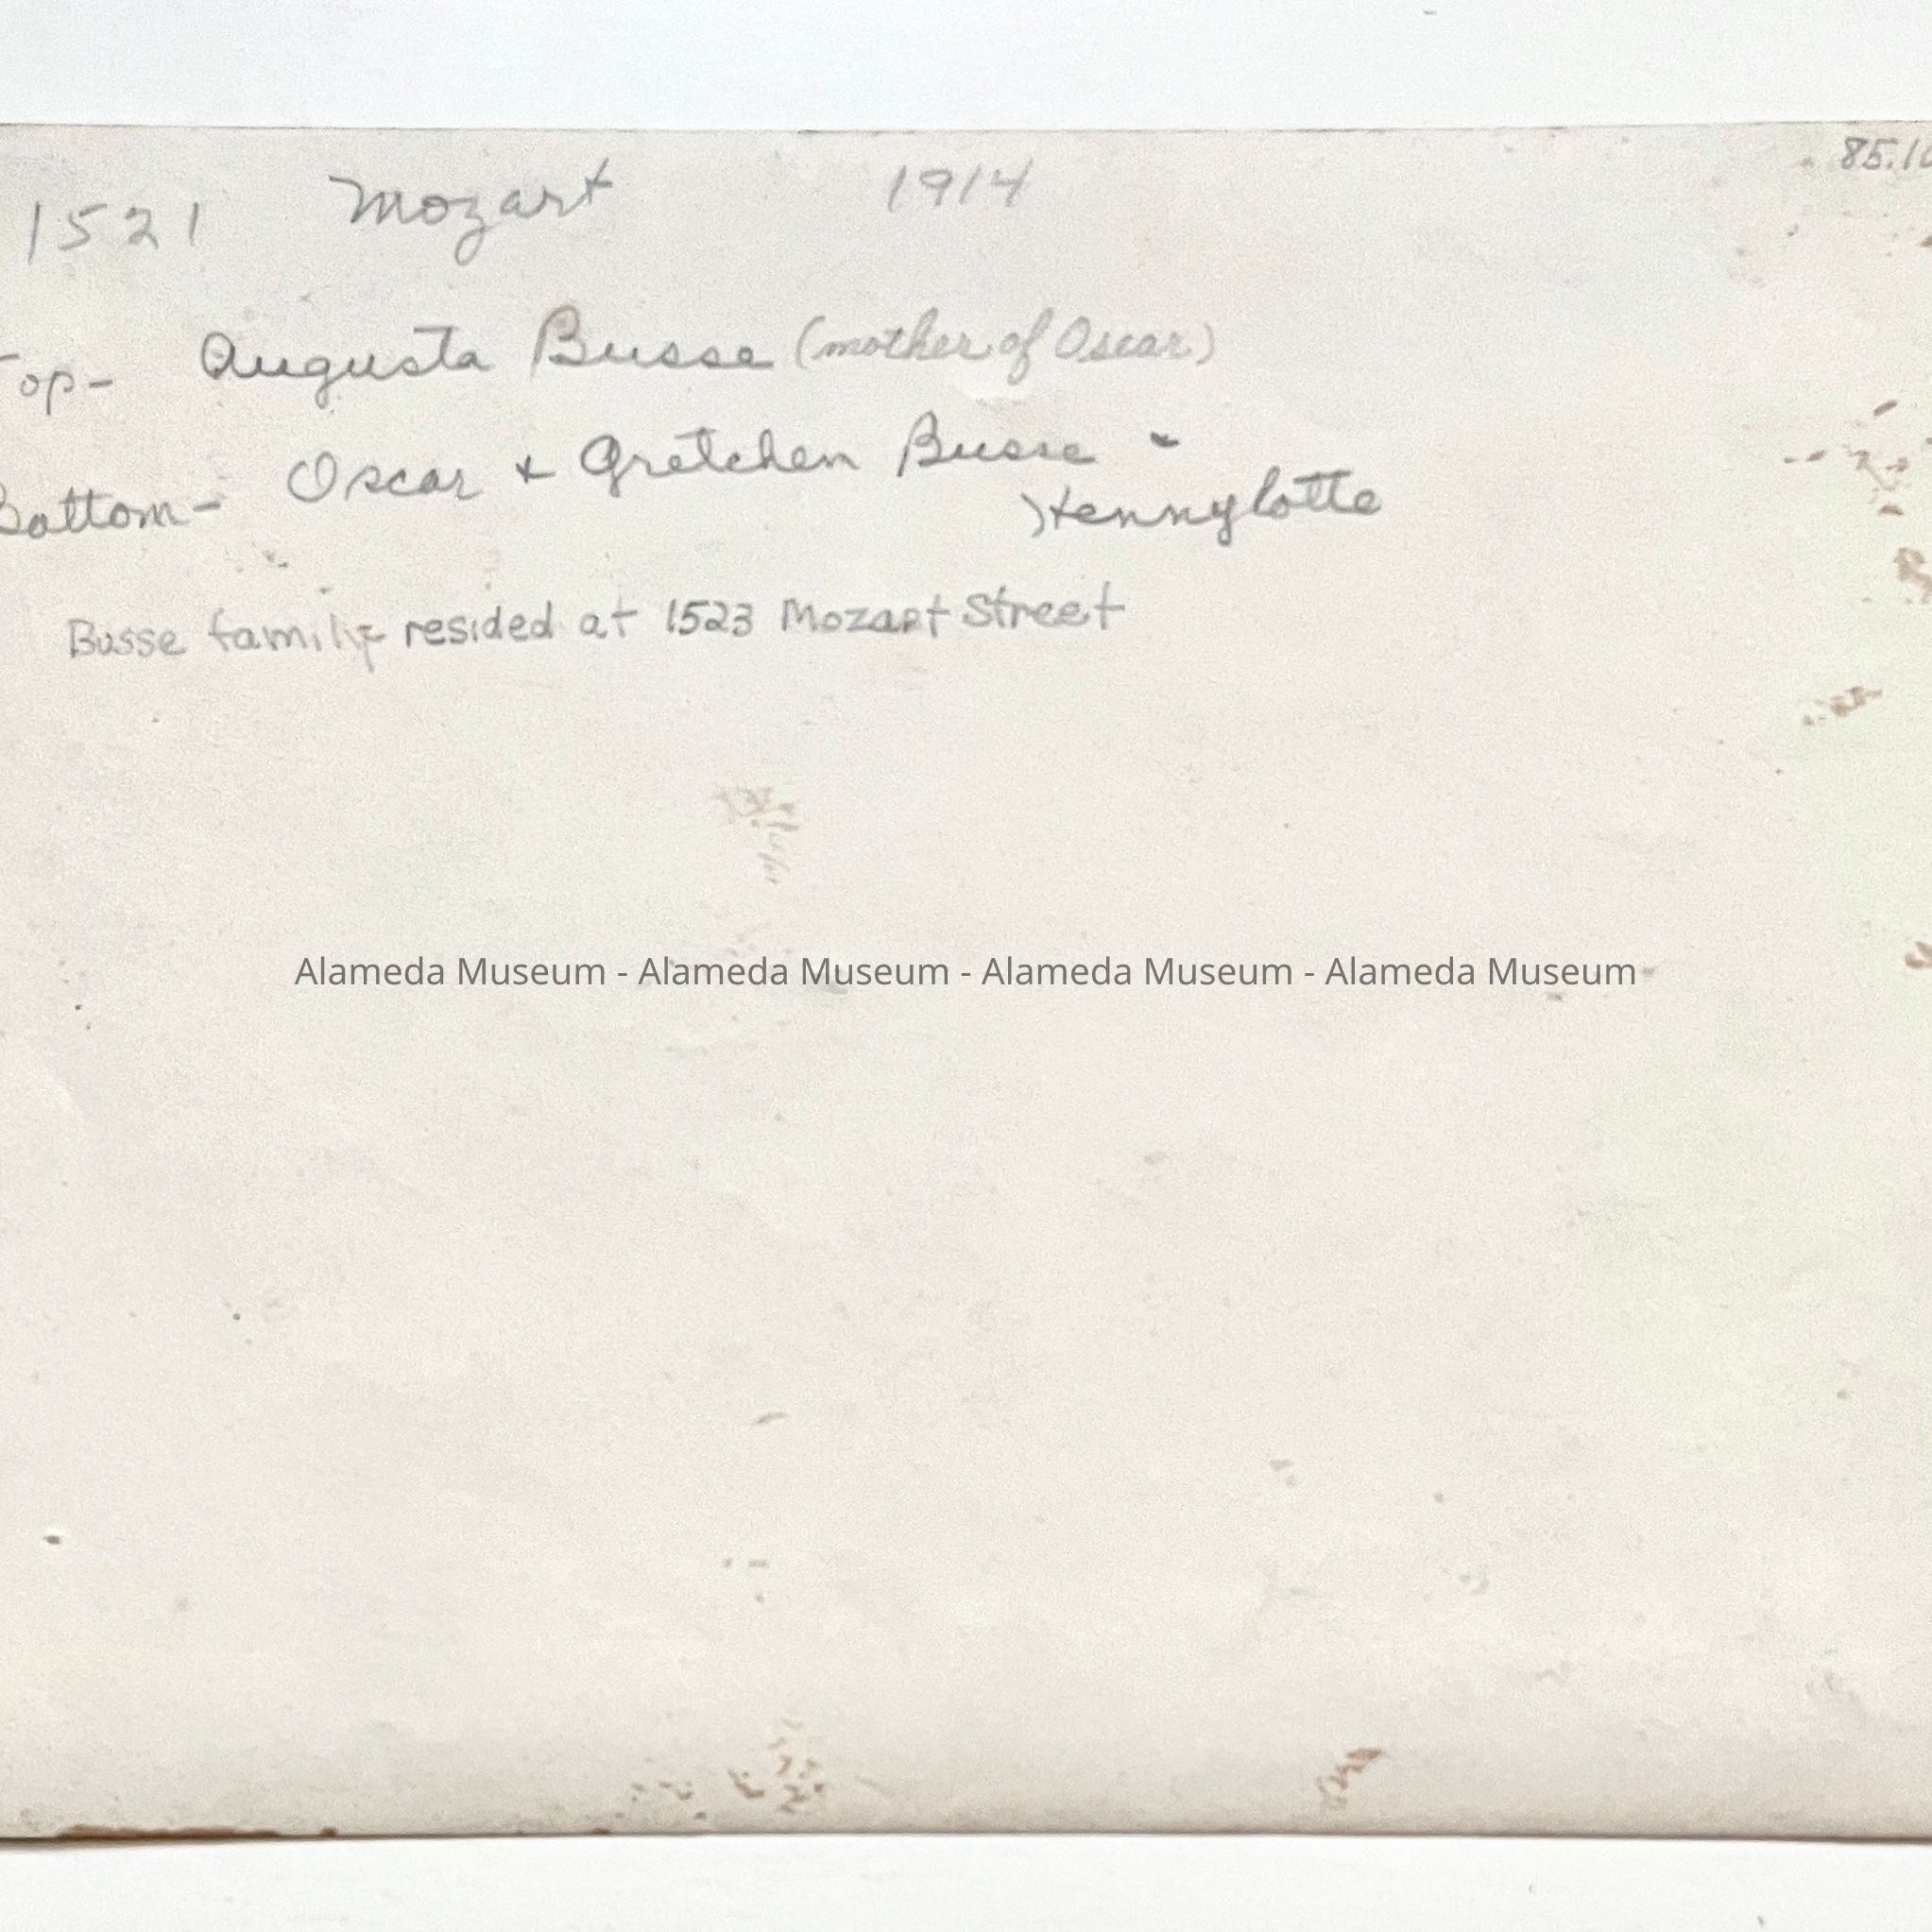 85.10
1521 Mozart 1914
Top- Augusta Busse (mother of Oscar)
Bottom- Oscar + Gretchen Busse -
Hennylotte
Busse family resided at 1523 Mozart Street
Alameda Museum - Alameda Museum - Alameda Museum - Alameda Museum